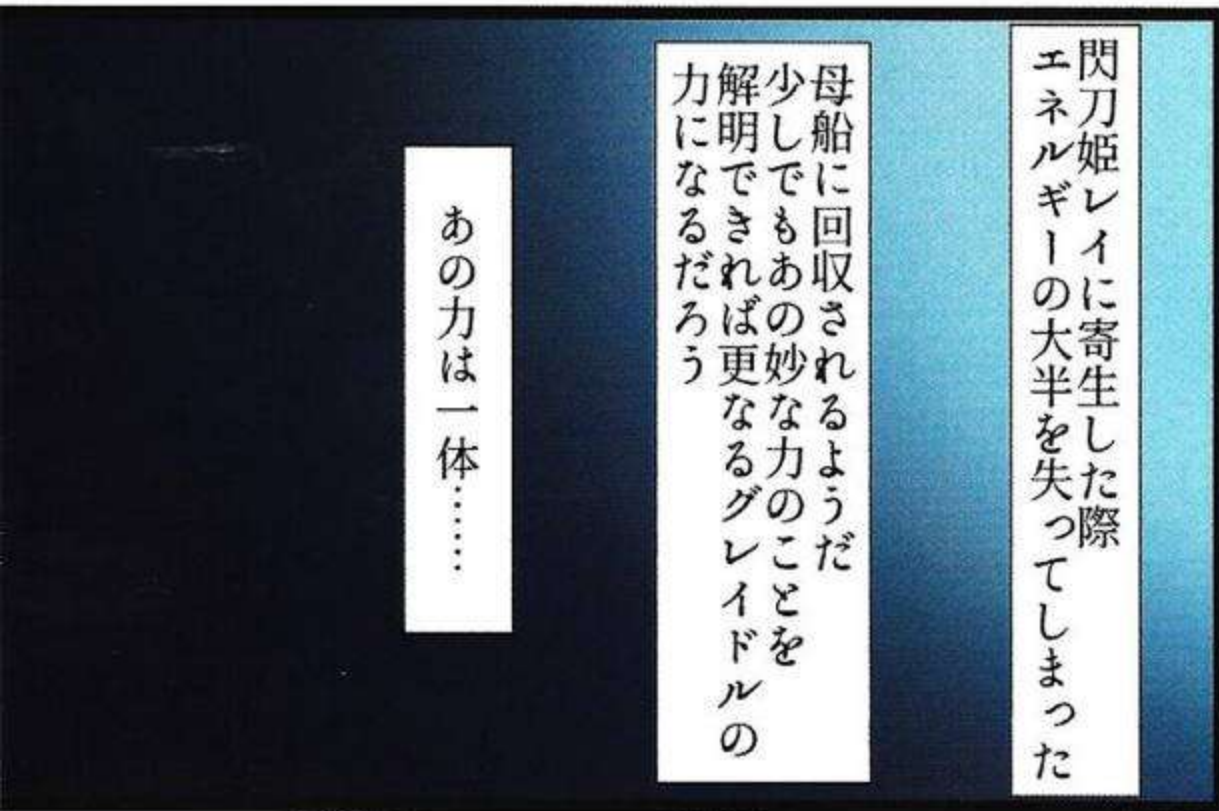 閃刀姫レイに寄生した際
エネルギーの大半を失ってしまった
母船に回収されるようだ
少しでもあの妙な力のことを
解明できれば更なるグレイドルの
力になるだろう
あの力は一体……